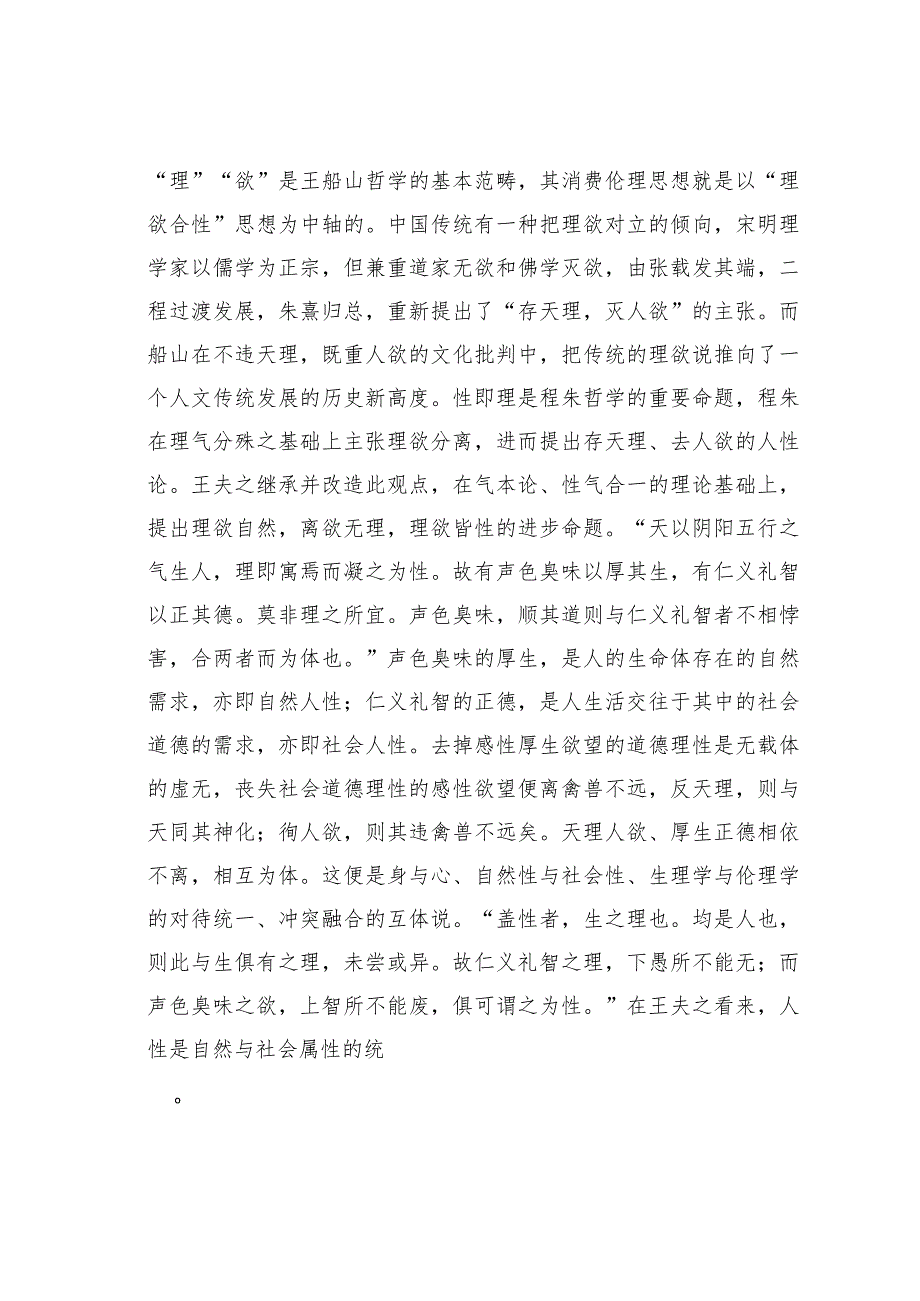 “理”“欲”是王船山哲学的基本范畴，其消费伦理思想就是以“理
欲合性”思想为中轴的。中国传统有一种把理欲对立的倾向，宋明理
学家以儒学为正宗，但兼重道家无欲和佛学灭欲，由张载发其端，二
程过渡发展，朱熹归总，重新提出了“存天理，灭人欲”的主张。而
船山在不违天理，既重人欲的文化批判中，把传统的理欲说推向了一
个人文传统发展的历史新高度。性即理是程朱哲学的重要命题，程朱
在理气分殊之基础上主张理欲分离，进而提出存天理、去人欲的人性
论。王夫之继承并改造此观点，在气本论、性气合一的理论基础上，
提出理欲自然，离欲无理，理欲皆性的进步命题。“天以阴阳五行之
气生人，理即寓焉而凝之为性。故有声色臭味以厚其生，有仁义礼智
以正其德。莫非理之所宜。声色臭味，顺其道则与仁义礼智者不相悖
害，合两者而为体也。”声色臭味的厚生，是人的生命体存在的自然
需求，亦即自然人性；仁义礼智的正德，是人生活交往于其中的社会
道德的需求，亦即社会人性。去掉感性厚生欲望的道德理性是无载体
的虚无，丧失社会道德理性的感性欲望便离禽兽不远，反天理，则与
天同其神化；徇人欲，则其违禽兽不远矣。天理人欲、厚生正德相依
不离，相互为体。这便是身与心、自然性与社会性、生理学与伦理学
的对待统一、冲突融合的互体说。“盖性者，生之理也。均是人也，
则此与生俱有之理，未尝或异。故仁义礼智之理，下愚所不能无；而
声色臭味之欲，上智所不能废，俱可谓之为性。”在王夫之看来，人
性是自然与社会属性的统
。